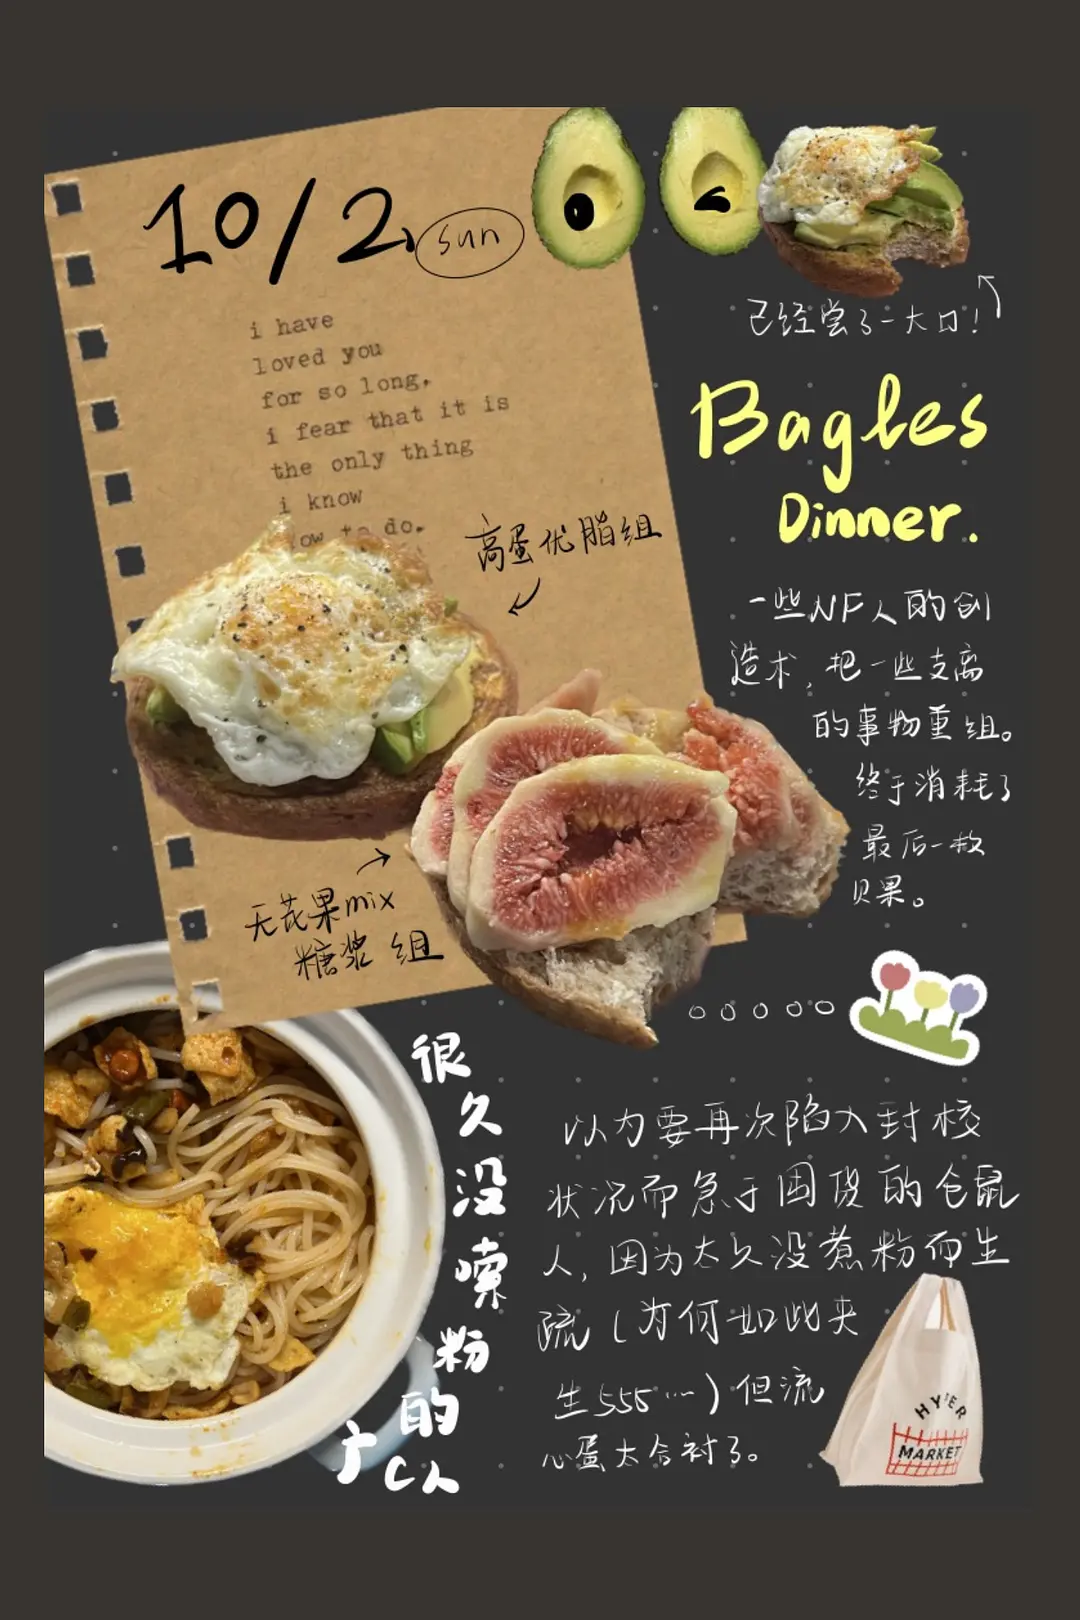 10/2, sun
i have
loved you
for so long,
i fear that it is
the only thing
i know
ow to do.
已经尝了一大口!
Bagles
Dinner.
高蛋优脂组
一些NF人的创
造术,把一些支离
的事物重组。
终于消耗了
最后一枚
贝果。
无花果mix
糖浆组
很久没嗦粉的广C人
以为要再次陷入封校
状况而急于囤货的仓鼠
人,因为太久没煮粉而生
疏(为何如此夹
生555…)但流
心蛋太合衬了。
HYPER
MARKET